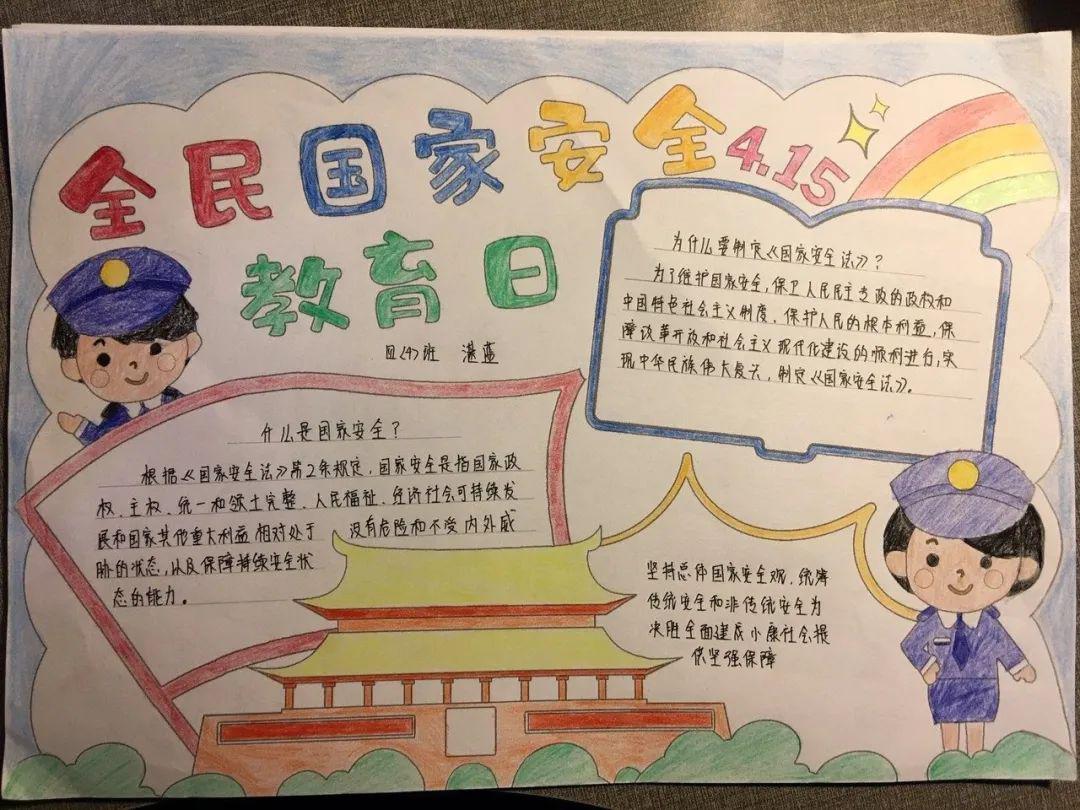 全民国家安全
4.15
教育日
四(4)班 湛蓝
为什么要制定《国家安全法》?
为了维护国家安全,保卫人民民主专政的政权和
中国特色社会主义制度、保护人民的根本利益,保
障改革开放和社会主义现代化建设的顺利进行;实
现中华民族伟大复兴,制定《国家安全法》。
什么是国家安全?
根据《国家安全法》第2条规定,国家安全是指国家政
权、主权、统一和领土完整、人民福祉、经济社会可持续发
展和国家其他重大利益相对处于没有危险和不受内外威
胁的状态,以及保障持续安全状
态的能力。
坚持总体国家安全观,统筹
传统安全和非传统安全为
决胜全面建成小康社会提
供坚强保障